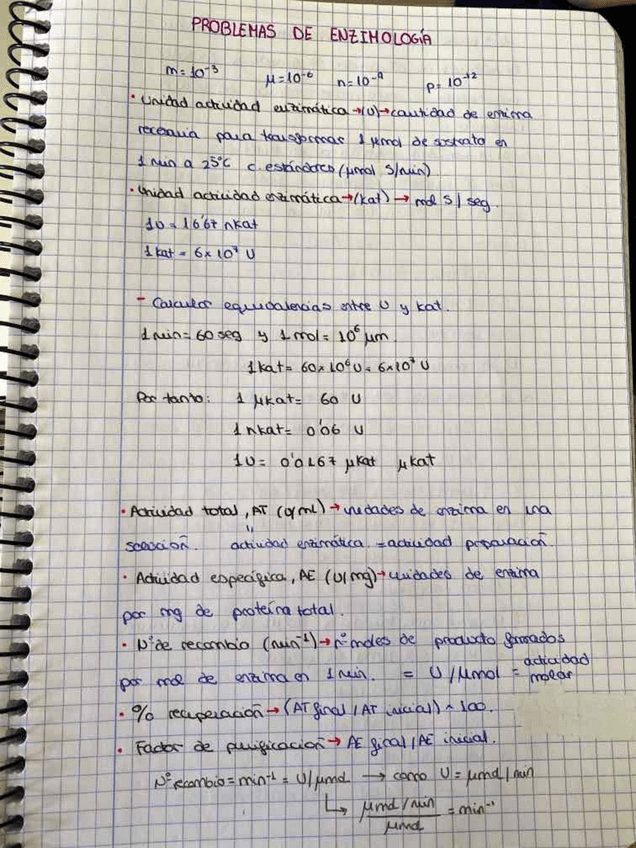 PROBLEMAS DE ENZIMOLOGÍA
m=10⁻³ μ=10⁻⁶ n=10⁻⁹ p=10⁻¹²
· Unidad actividad enzimática→(U)→cantidad de enzima
necesaria para transformar 1 μmol de sustrato en
1 min a 25°C c. estándares (μmol S/min)
· Unidad actividad enzimática→(kat)→ mol S/ seg.
1U = 16'67 nkat
1 kat = 6x10⁷ U
- Calcular equivalencias entre U y kat.
1 min = 60 seg y 1 mol = 10⁶ μm.
1 kat = 60x10⁶ U = 6x10⁷ U
Por tanto: 1 μkat = 60 U
1 nkat = 0'06 U
1U = 0'0167 μkat μkat
· Actividad total, AT (U/mL)→unidades de enzima en una
solución. actividad enzimática = actividad preparación.
· Actividad específica, AE (U/mg)→unidades de enzima
por mg de proteína total.
· Nº de recambio (min⁻¹)→nº moles de producto formados
por mol de enzima en 1 min. = U/μmol = actividad molar
· % recuperación→(AT final / AT inicial) x 100.
· Factor de purificación→ AE final / AE inicial.
Nº recambio = min⁻¹ = U/μmol → como U = μmol/min
↳ μmol/min / μmol = min⁻¹